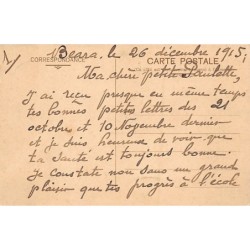 Beara, le 26 décembre 1915,
CORRESPONDANCE
CARTE POSTALE
Ma chère petite Paulette,
J'ai reçu presque en même temps
tes bonnes petites lettres des 21
octobre et 10 Novembre dernier
et je suis heureux de voir que
ta santé est toujours bonne.
Je constate non sans un grand
plaisir que tes progrès à l'école